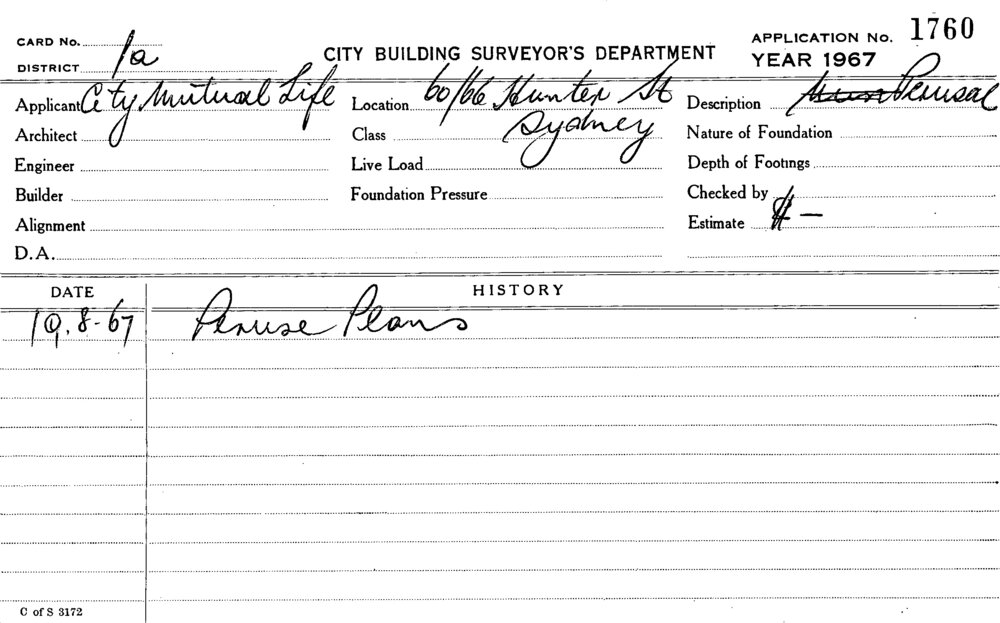 CARD No.
DISTRICT 1a
CITY BUILDING SURVEYOR'S DEPARTMENT
APPLICATION No. 1760
YEAR 1967
Applicant City Mutual Life
Location 60/66 Hunter St
Sydney
Description Perusal
Architect
Class
Nature of Foundation
Engineer
Live Load
Depth of Footings
Builder
Foundation Pressure
Checked by
Alignment
Estimate $ —
D.A.
DATE
HISTORY
19.8-67 Peruse Plans
C of S 3172